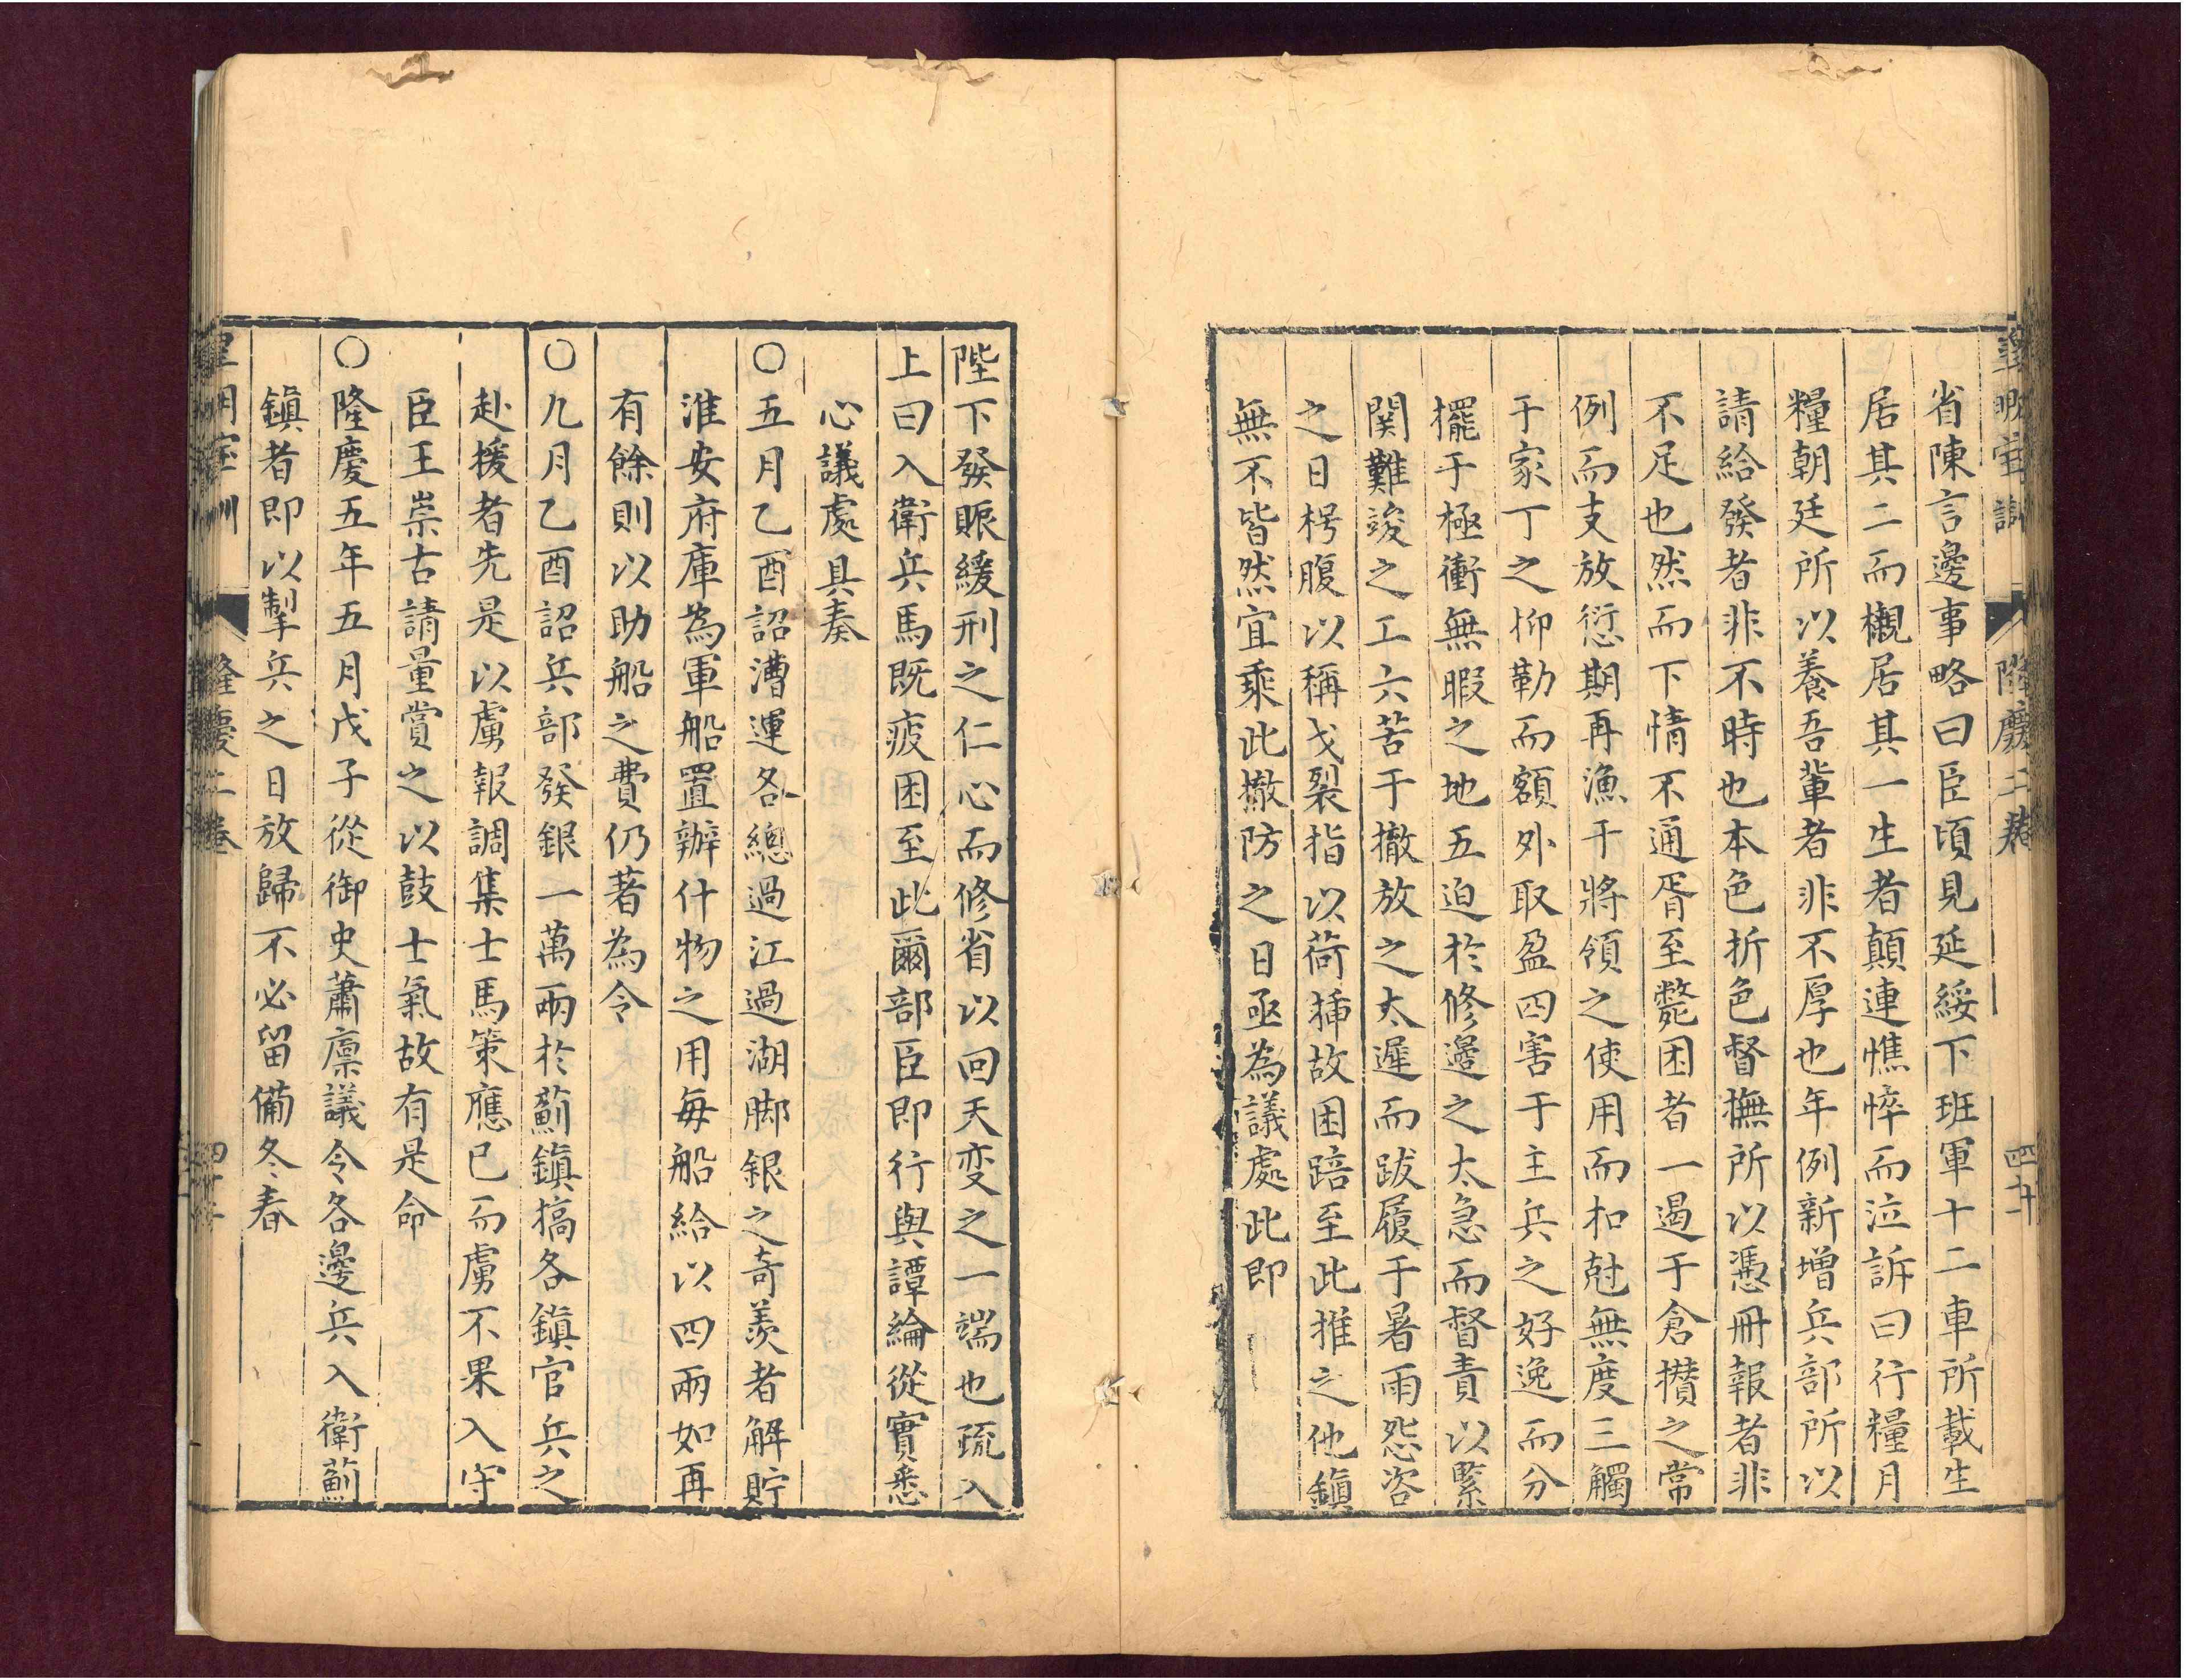 皇明宝訓　隆慶二卷
省陳言邊事略曰臣頃見延綏下班軍十二車所載生
居其二而櫬居其一生者顛連憔悴而泣訴曰行糧月
糧朝廷所以養吾軰者非不厚也年例新增兵部所以
請給發者非不時也本色折色督撫所以憑冊報者非
不足也然而下情不通胥至斃困者一遏于倉攢之常
例而支放愆期再漁于將領之使用而扣尅無度三觸
于家丁之抑勒而額外取盈四害于主兵之好逸而分
擺于極衝無暇之地五迫於修邊之太急而督責以緊
関難竣之工六苦于撤放之太遲而跋履于暑雨怨咨
之日枵腹以稱戈裂指以荷插故困踣至此推之他鎮
無不皆然宜乘此撤防之日亟為議處此即
陛下發賑緩刑之仁心而修省以回天变之一端也疏入
上曰入衛兵馬既疲困至此爾部臣即行與譚綸從實悉
心議處具奏
○五月乙酉詔漕運各總過江過湖脚銀之奇羨者解貯
淮安府庫為軍船置辦什物之用每船給以四兩如再
有餘則以助船之費仍著為令
○九月乙酉詔兵部發銀一萬兩於薊鎮搞各鎮官兵之
赴援者先是以虜報調集士馬策應已而虜不果入守
臣王崇古請量賞之以鼓士氣故有是命
○隆慶五年五月戊子從御史蕭廪議令各邊兵入衛薊
鎮者即以掣兵之日放歸不必留備冬春
皇明宝訓　隆慶二卷